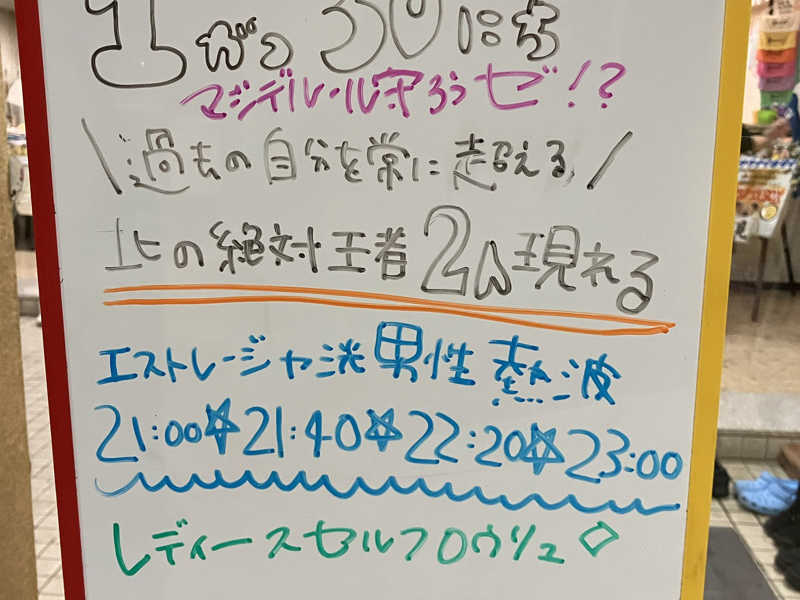 1がつ30にち
マジデルール守ろうゼ!?
\過去の自分を常に超える/
北の絶対王者2人現れる
エストレージャ洸男性熱波
21:00☆21:40☆22:20☆23:00
レディースセルフロウリュ◇